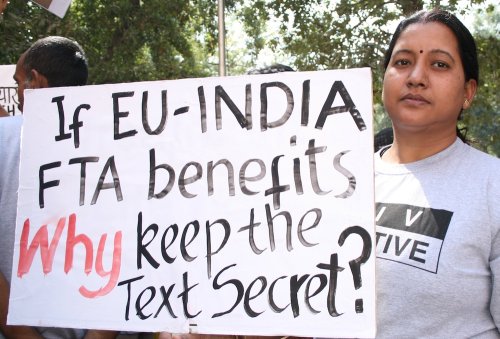 If EU-INDIA
FTA benefits
Why keep the
Text Secret?